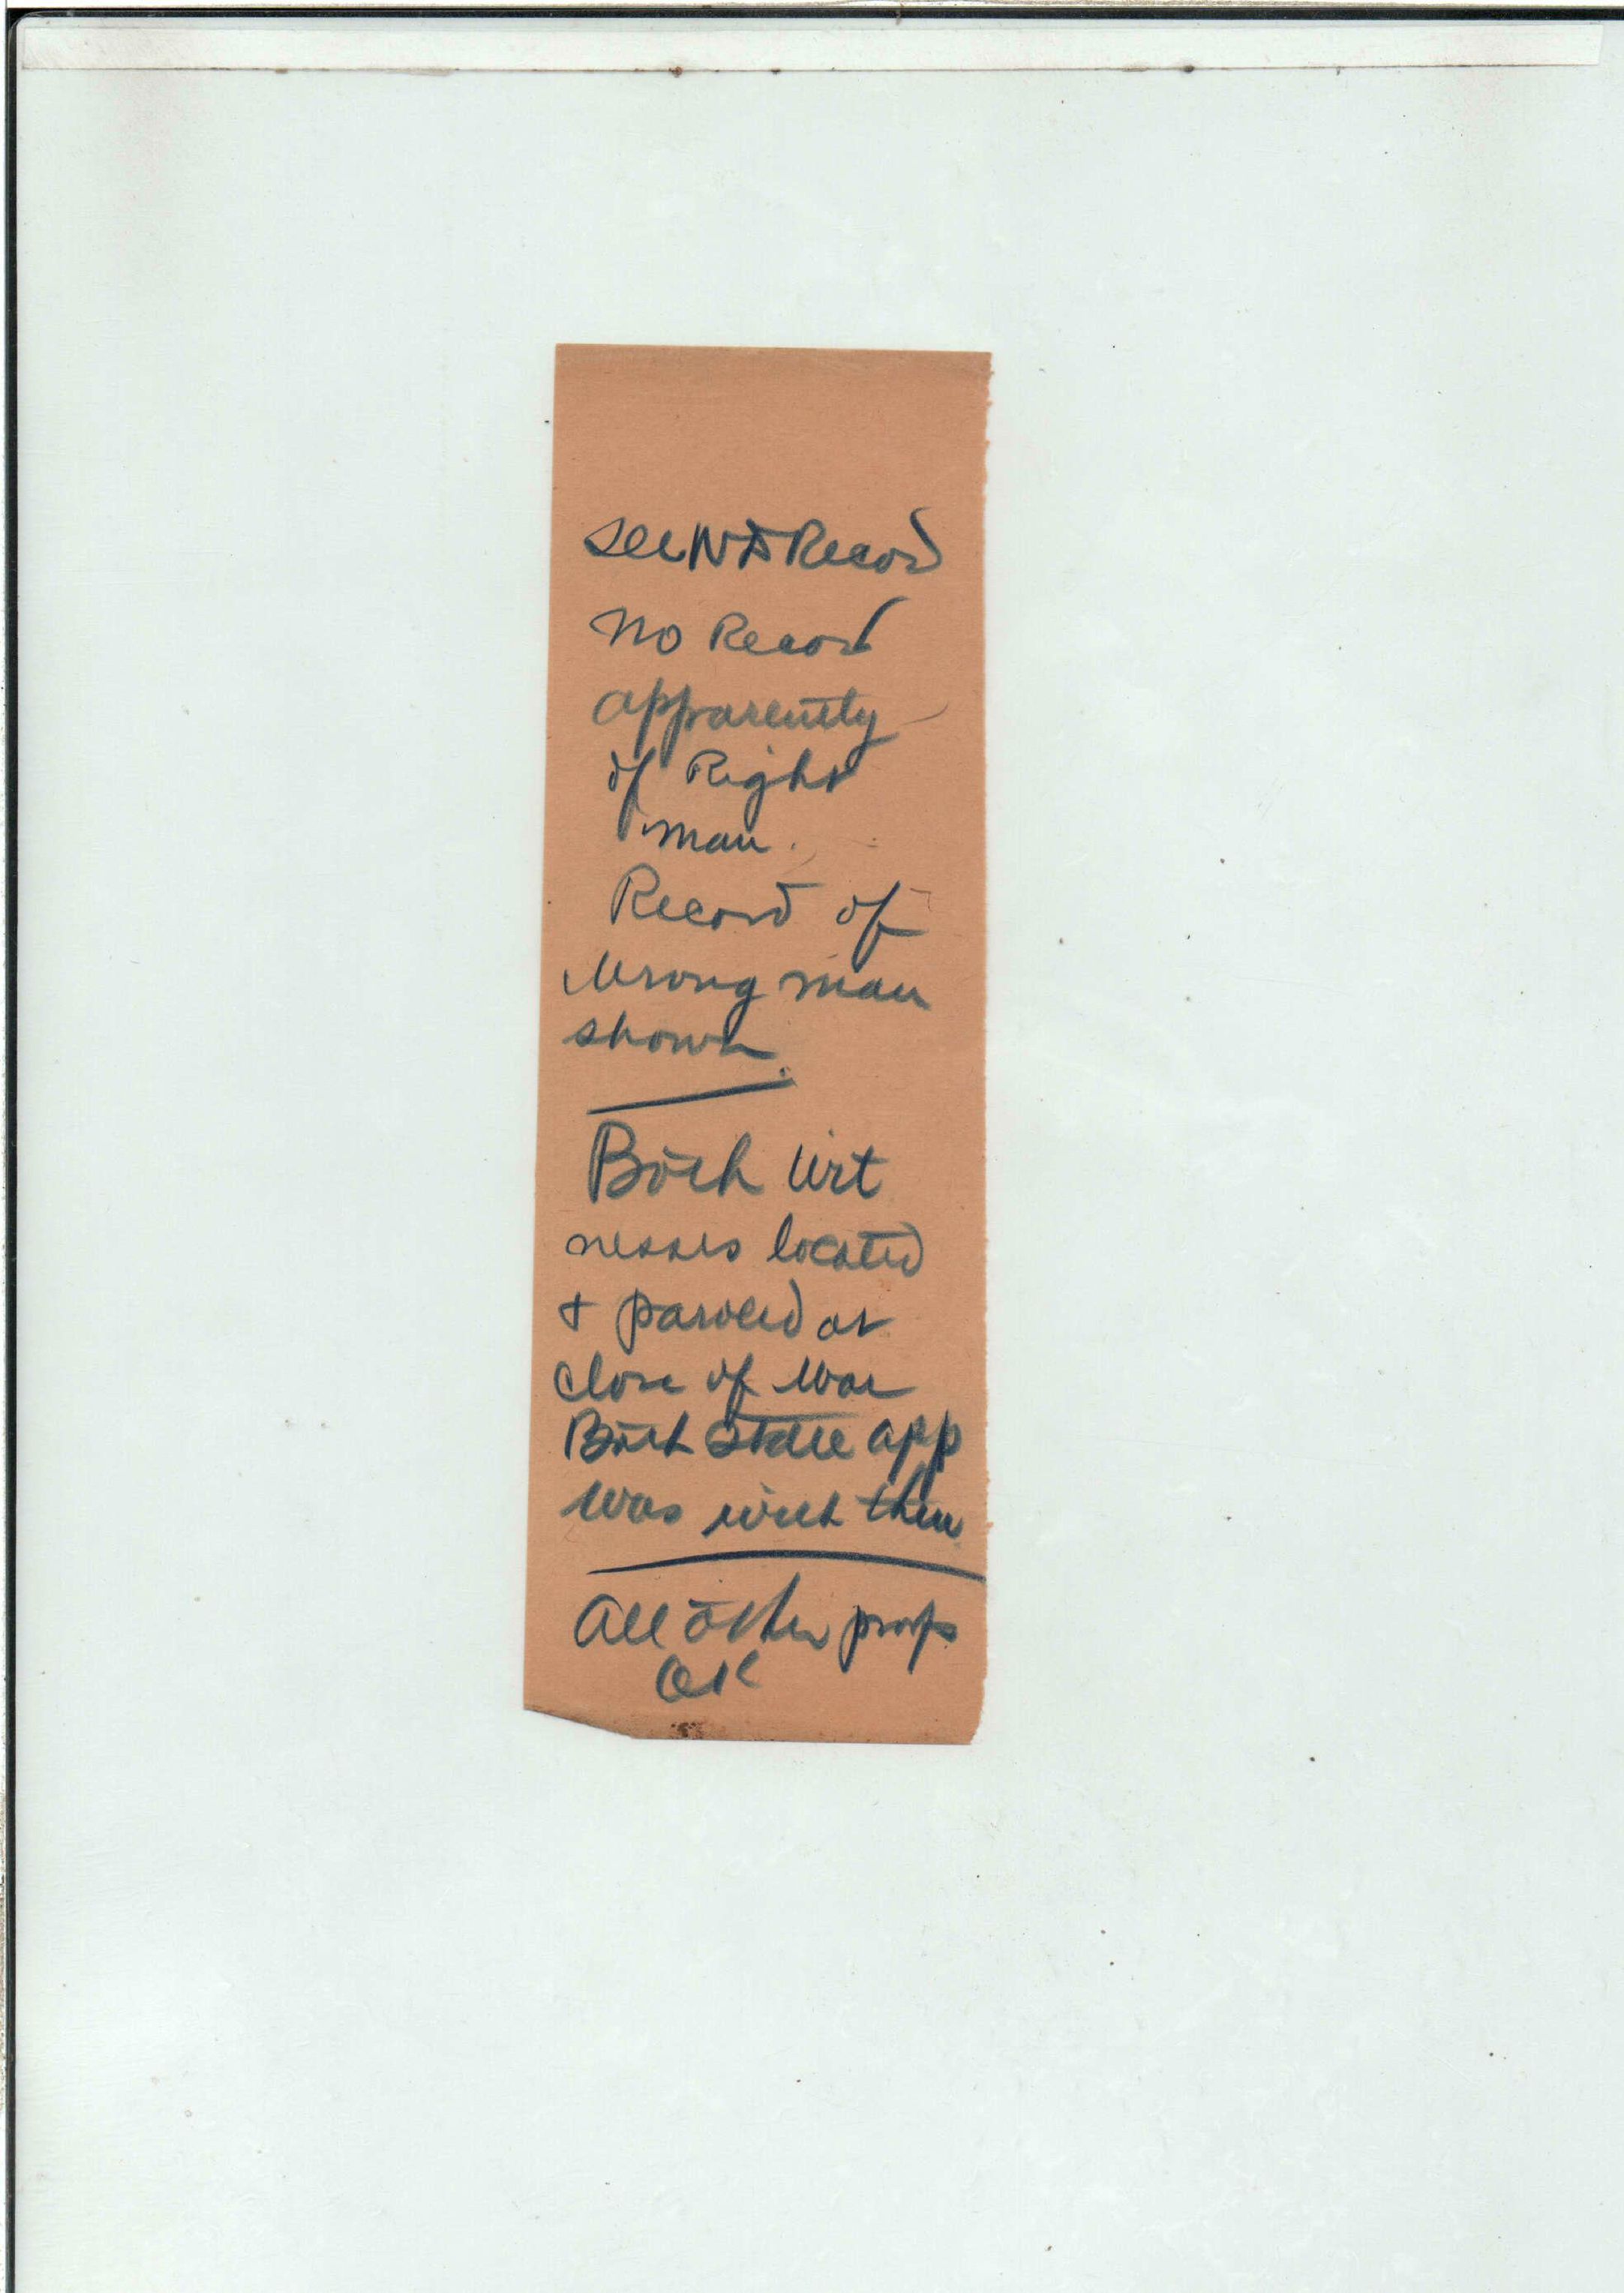 See WD Record
No Record
apparently
of Right
man.
Record of
wrong man
shown.
Both wit
nesses located
+ paroled at
close of war
Both state app
was with them
All other proofs
OK